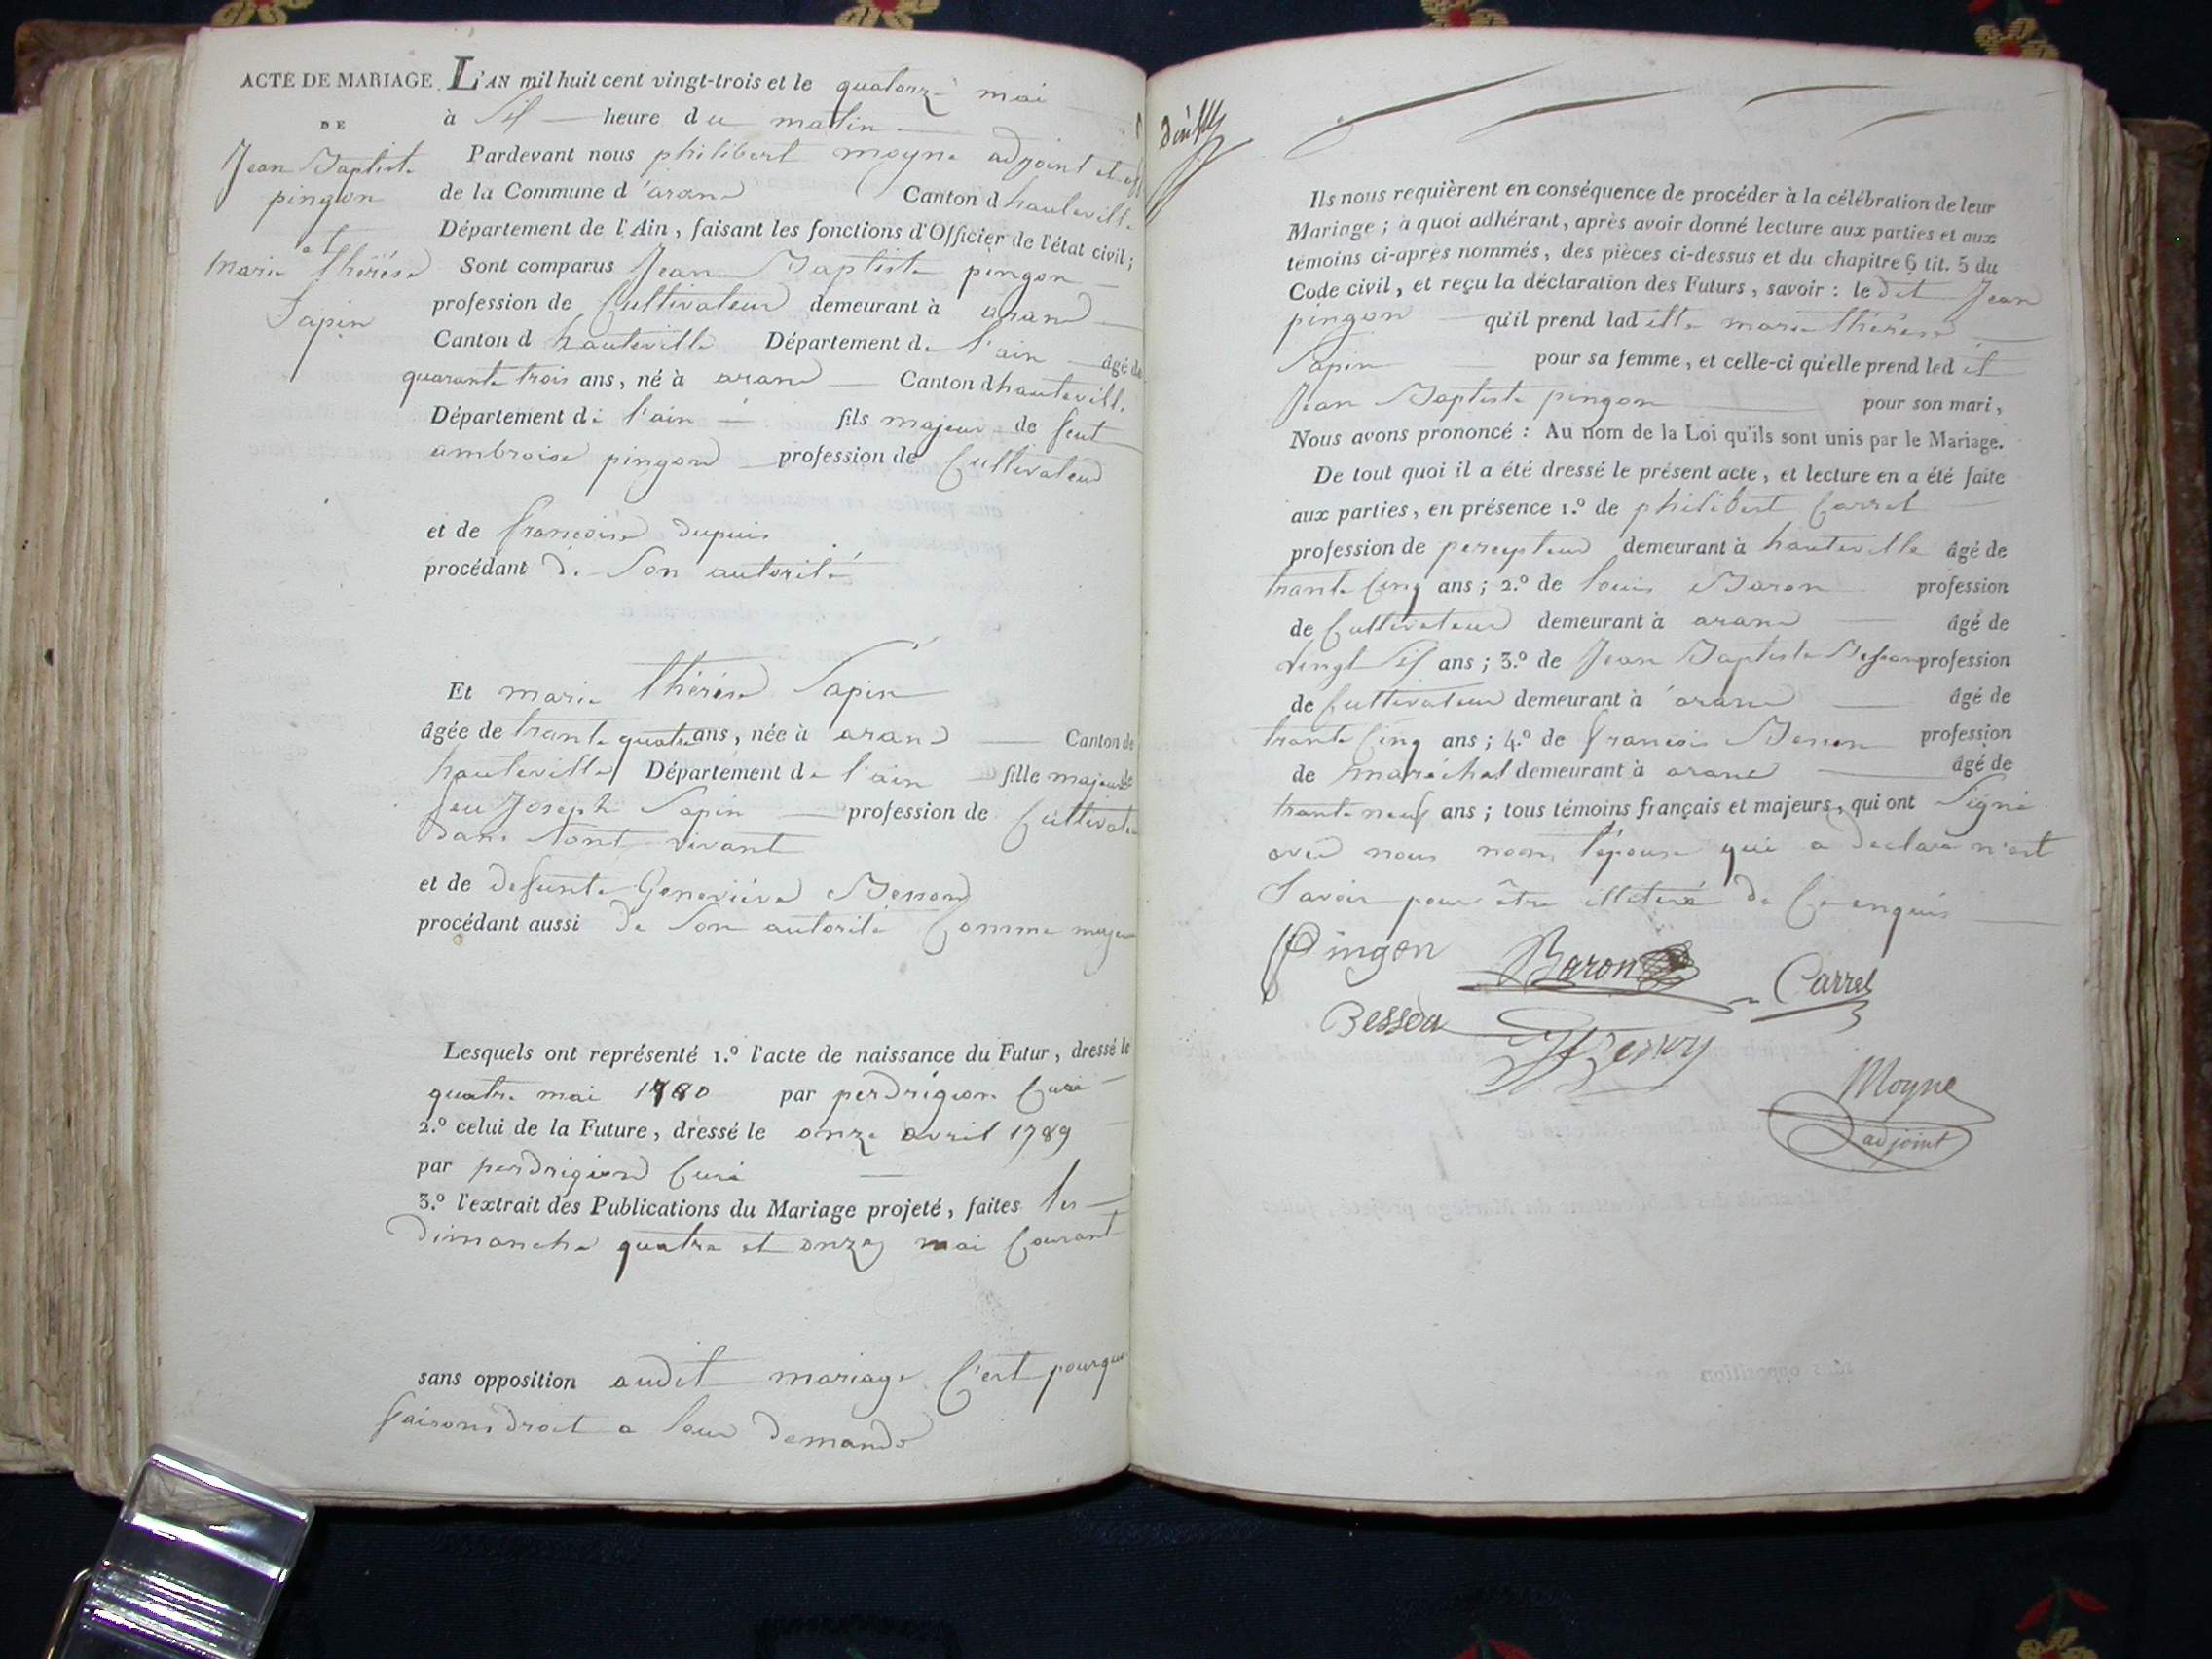 ACTE DE MARIAGE
DE
Jean Baptiste
pingon
et
marie thérèse
Sapin
L'AN mil huit cent vingt-trois et le quatorze mai
à Six heure du matin
Pardevant nous philibert moyne adjoint et off
de la Commune d'aranc Canton d hauteville
Département de l'Ain, faisant les fonctions d'Officier de l'état civil;
Sont comparus Jean Baptiste pingon
profession de Cultivateur demeurant à aranc
Canton d hauteville Département de l'ain âgé de
quarante trois ans, né à aranc Canton d hauteville
Département de l'ain fils majeur de feut
ambroise pingon profession de Cultivateur
et de françoise dupuis
procédant de Son autorité
Et marie thérèse Sapin
âgée de trante quatre ans, née à aranc Canton de
hauteville Département de l'ain fille majeure de
feu Joseph Sapin profession de Cultivateu
dans Sont vivant
et de defunte Geneviève Besson
procédant aussi de Son autorité Comme majeu
Lesquels ont représenté 1.º l'acte de naissance du Futur, dressé le
quatre mai 1780 par perdrigion Curé
2.º celui de la Future, dressé le onze avril 1789
par perdrigion Curé
3.º l'extrait des Publications du Mariage projeté, faites les
dimanche quatre et onze mai Courant
sans opposition audit mariage C'est pourquoi
faisons droit a leur demande
Ils nous requièrent en conséquence de procéder à la célébration de leur
Mariage; à quoi adhérant, après avoir donné lecture aux parties et aux
témoins ci-après nommés, des pièces ci-dessus et du chapitre 6 tit. 5 du
Code civil, et reçu la déclaration des Futurs, savoir: le dit Jean
pingon qu'il prend lad itte marie thérèse
Sapin pour sa femme, et celle-ci qu'elle prend led it
Jean Baptiste pingon pour son mari,
Nous avons prononcé: Au nom de la Loi qu'ils sont unis par le Mariage.
De tout quoi il a été dressé le présent acte, et lecture en a été faite
aux parties, en présence 1.º de philibert Carrel
profession de percepteur demeurant à hauteville âgé de
trante Cinq ans; 2.º de louis Baron profession
de Cultivateur demeurant à aranc âgé de
vingt Six ans; 3.º de Jean Baptiste Besson profession
de Cultivateur demeurant à aranc âgé de
trante Cinq ans; 4.º de françois profession
de maréchal demeurant à aranc âgé de
trante neuf ans; tous témoins français et majeurs, qui ont Signé
avec nous non l'épouse qui a declaré n'est
Savoir pour être illeteré de Ce enquis
Pingon
Baron
Carrel
Besson
Moyne
adjoint